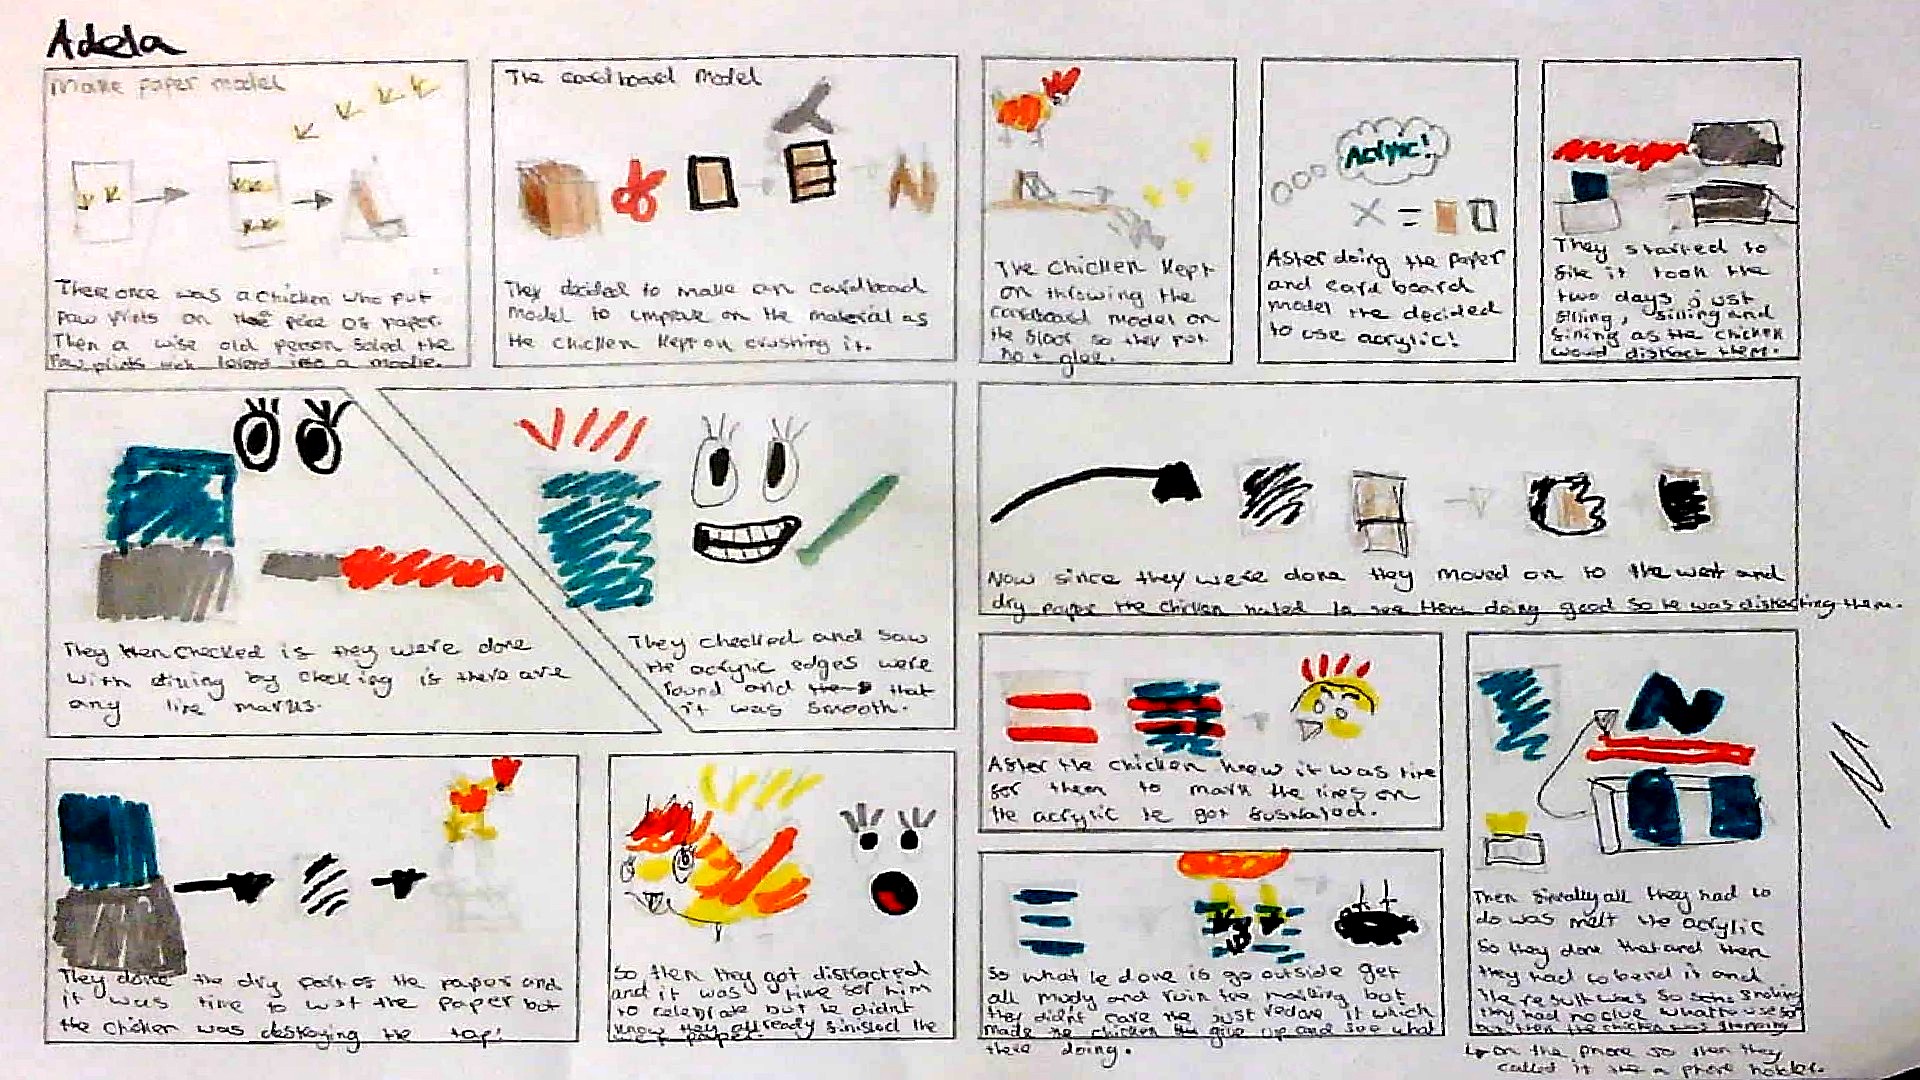 Adela
Make paper model
There once was a chicken who put
paw prints on the pece of paper.
Then a wise old person foled the
Paw prints into a
The cardboard Model
They decided to make an cardboard
model to improve on the material as
the chicken kept on crushing it.
The chicken kept
on throwing the
cardboard model on
the floor so they put
hot glue.
Acrylic!
X =
After doing the paper
and card board
model the decided
to use acrylic!
They started to
file it took the
two days just
filling, filling and
filling as the chicken
woud distract them.
They then checked if they were done
with filling by checking if there are
any line marks.
They checked and saw
the acrylic edges were
round and that
it was smooth.
Now since they were done they moved on to the wet and
dry paper the chicken hated to see them doing good so he was distracting them.
They done the dry part of the paper and
it was time to wet the paper but
the chicken was destroying the tap!
So then they got distracted
and it was time for him
to celebrate but he didnt
know they allready finished the
wet paper.
After the chicken knew it was time
for them to mark the lines on
the acrylic he got fustrated.
So what he done is go outside get
all mudy and ruin the marking but
they didnt care the just redone it which
made the chicken give up and see what
there doing.
N
Then finally all they had to
do was melt the acrylic
so they done that and then
they had to bend it and
the result was so
they had no clue what to use for
but then the chicken was
↳ on the phone so then they
called it a phone holder.